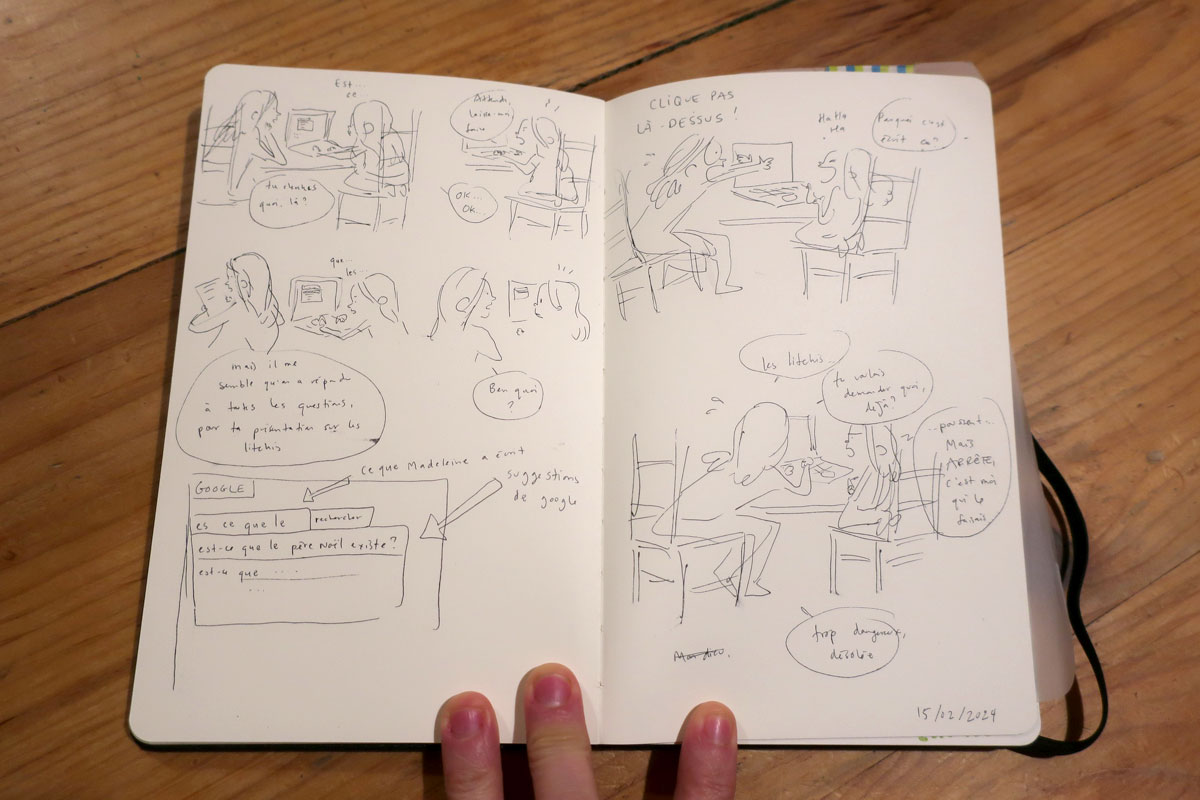 Est...
ce
Attends,
laisse-moi
faire
tu cherches
quoi, là?
OK...
OK...
que...
les...
mais il me
semble qu'on a répondu
à toutes les questions,
pour ta présentation sur les
litchis
Ben quoi
?
ce que Madeleine a écrit
suggestions
de google
GOOGLE
es ce que le
rechercher
est-ce que le père Noël existe?
est-ce que ....
...
CLIQUE PAS
LÀ-DESSUS!
Ha Ha
Ha
Pourquoi c'est
écrit ça?
les litchis...
tu voulais
demander quoi,
déjà?
...poussent...
Mais
ARRÊTE,
c'est moi
qui le
faisais
trop dangereux,
désolée
15/02/2024